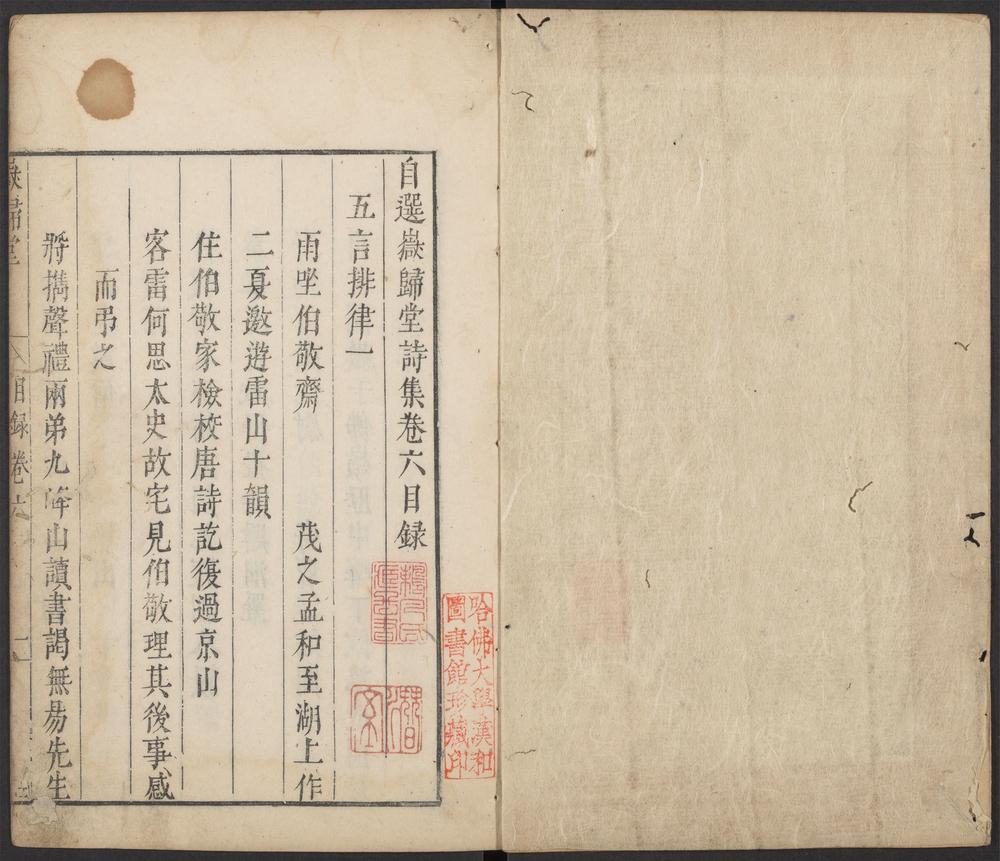 自選嶽歸堂詩集卷六目録
五言排律一
雨坐伯敬齋　茂之孟和至湖上作
二夏邀遊雷山十韻
住伯敬家檢校唐詩訖復過京山
客雷何思太史故宅見伯敬理其後事感
而弔之
將攜聲禮兩弟九峰山讀書謁無易先生
嶽歸堂
目録卷六
一
哈佛大學漢和
圖書館珍藏印